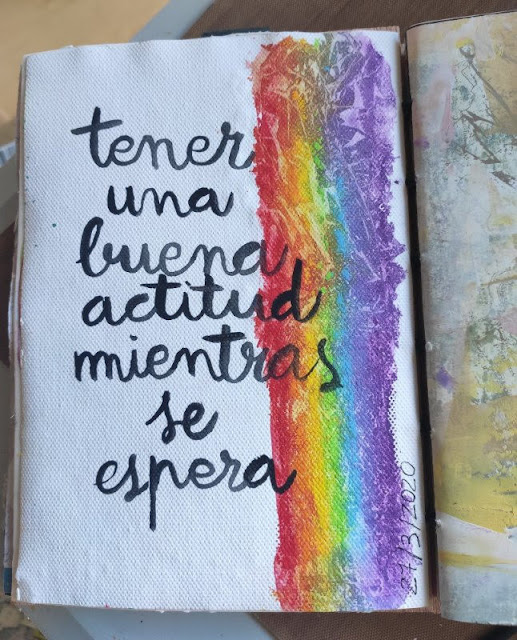 tener
una
buena
actitud
mientras
se
espera
27/3/2020